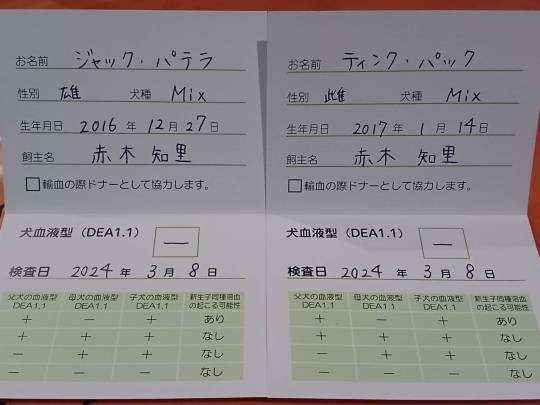 お名前 ジャック・パテラ
性別 雄 犬種 Mix
生年月日 2016 年 12 月 27 日
飼主名 赤木 知里
□輸血の際ドナーとして協力します。
犬血液型（DEA1.1） －
検査日 2024 年 3 月 8 日
父犬の血液型 DEA1.1 母犬の血液型 DEA1.1 子犬の血液型 DEA1.1 新生子同種溶血の起こる可能性
＋ － ＋ あり
＋ ＋ ＋ なし
－ ＋ ＋ なし
－ － － なし
お名前 ティンク・パック
性別 雌 犬種 Mix
生年月日 2017 年 1 月 14 日
飼主名 赤木 知里
□輸血の際ドナーとして協力します。
犬血液型（DEA1.1） －
検査日 2024 年 3 月 8 日
父犬の血液型 DEA1.1 母犬の血液型 DEA1.1 子犬の血液型 DEA1.1 新生子同種溶血の起こる可能性
＋ － ＋ あり
＋ ＋ ＋ なし
－ ＋ ＋ なし
－ － － なし